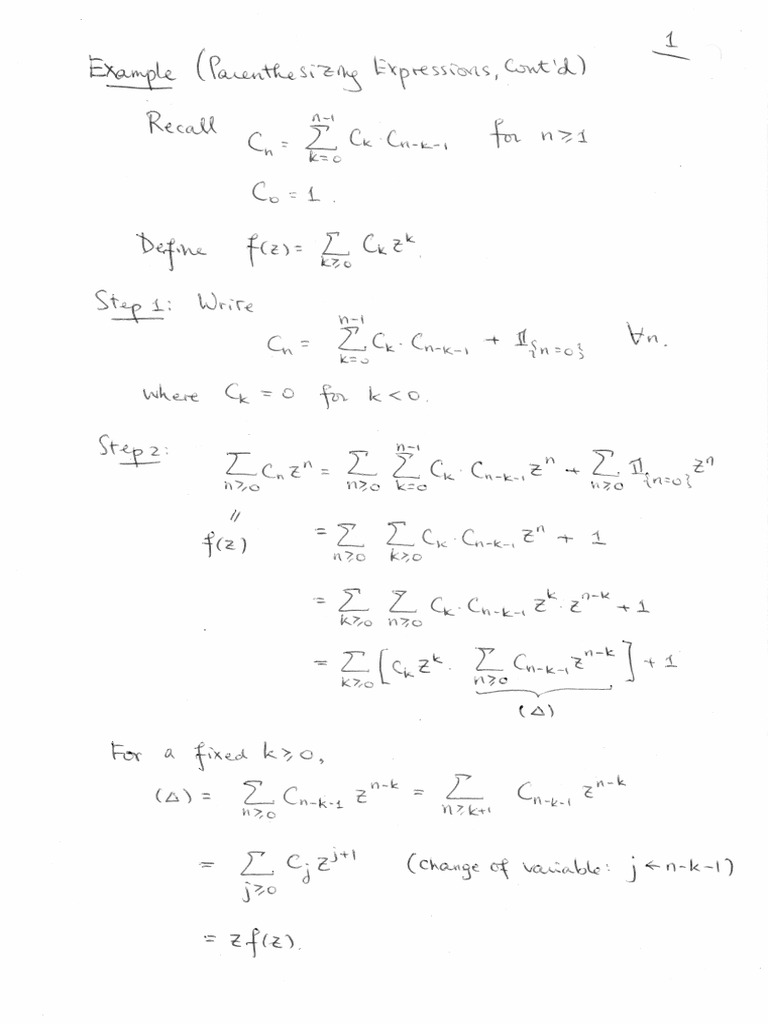 1
Example (Parenthesizing Expressions, Cont'd)
Recall C_n = ∑_{k=0}^{n-1} C_k · C_{n-k-1} for n ≥ 1
C_0 = 1.
Define f(z) = ∑_{k≥0} C_k z^k.
Step 1: Write
C_n = ∑_{k=0}^{n-1} C_k · C_{n-k-1} + 𝟙_{{n=0}} ∀n.
where C_k = 0 for k < 0.
Step 2: ∑_{n≥0} C_n z^n = ∑_{n≥0} ∑_{k=0}^{n-1} C_k · C_{n-k-1} z^n + ∑_{n≥0} 𝟙_{{n=0}} z^n
"
f(z) = ∑_{n≥0} ∑_{k≥0} C_k · C_{n-k-1} z^n + 1
= ∑_{k≥0} ∑_{n≥0} C_k · C_{n-k-1} z^k · z^{n-k} + 1
= ∑_{k≥0} [C_k z^k · ∑_{n≥0} C_{n-k-1} z^{n-k}] + 1
(Δ)
For a fixed k ≥ 0,
(Δ) = ∑_{n≥0} C_{n-k-1} z^{n-k} = ∑_{n≥k+1} C_{n-k-1} z^{n-k}
= ∑_{j≥0} C_j z^{j+1} (change of variable: j ← n-k-1)
= z f(z).